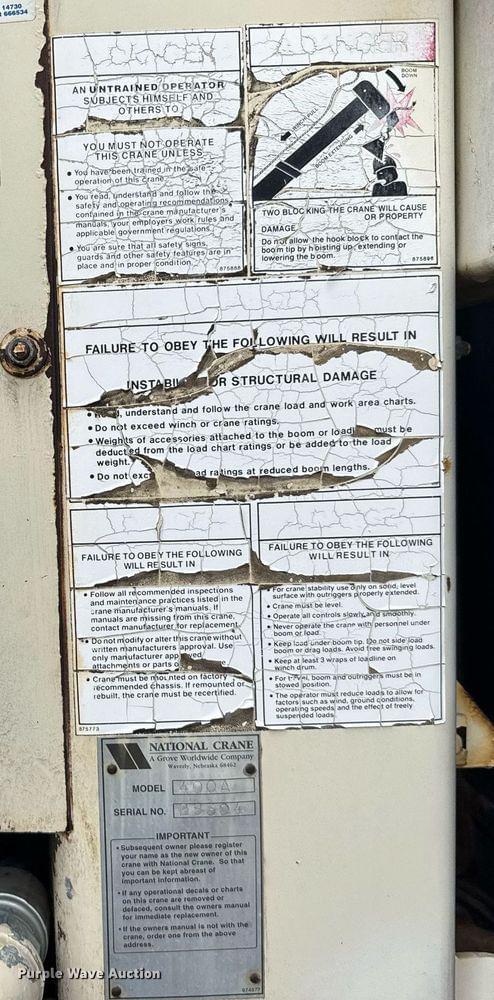 14730
R 666534
AN UNTRAINED OPERATOR
SUBJECTS HIMSELF AND
OTHERS TO
YOU MUST NOT OPERATE
THIS CRANE UNLESS
• You have been trained in the safe
operation of this crane.
• You read, understand and follow the
safety and operating recommendations
contained in the crane manufacturer's
manuals, your employers work rules and
applicable government regulations.
• You are sure that all safety signs,
guards and other safety features are in
place and in proper condition.
875888
BOOM
DOWN
BOOM EXTENSION
TWO BLOCKING THE CRANE WILL CAUSE
OR PROPERTY
DAMAGE
Do not allow the hook block to contact the
boom tip by hoisting up, extending or
lowering the boom.
875898
FAILURE TO OBEY THE FOLLOWING WILL RESULT IN
INSTABIL OR STRUCTURAL DAMAGE
• Read, understand and follow the crane load and work area charts.
• Do not exceed winch or crane ratings.
• Weights of accessories attached to the boom or loadl must be
deducted from the load chart ratings or be added to the load
weight.
• Do not exc ad ratings at reduced boom lengths.
FAILURE TO OBEY THE FOLLOWING
WILL RESULT IN
• Follow all recommended inspections
and maintenance practices listed in the
crane manufacturer's manuals. If
manuals are missing from this crane,
contact manufacturer for replacement.
• Do not modify or alter this crane without
written manufacturers approval. Use
only manufacturer approved
attachments or parts o
• Crane must be mounted on factory
recommended chassis. If remounted or
rebuilt, the crane must be recertified.
875773
FAILURE TO OBEY THE FOLLOWING
WILL RESULT IN
• For crane stability use only on solid, level
surface with outriggers properly extended.
• Crane must be level.
• Operate all controls slowly and smoothly.
• Never operate the crane with personnel under
boom or load.
• Keep load under boom tip. Do not side load
boom or drag loads. Avoid free swinging loads.
• Keep at least 3 wraps of loadline on
winch drum.
• For travel, boom and outriggers must be in
stowed position.
• The operator must reduce loads to allow for
factors such as wind, ground conditions,
operating speeds and the effect of freely
suspended loads.
NATIONAL CRANE
A Grove Worldwide Company
Waverly, Nebraska 68462
MODEL 400A
SERIAL NO.
IMPORTANT
• Subsequent owner please register
your name as the new owner of this
crane with National Crane. So that
you can be kept abreast of
important information.
• If any operational decals or charts
on this crane are removed or
defaced, consult the owners manual
for immediate replacement.
• If the owners manual is not with the
crane, order one from the above
address.
Purple Wave Auction